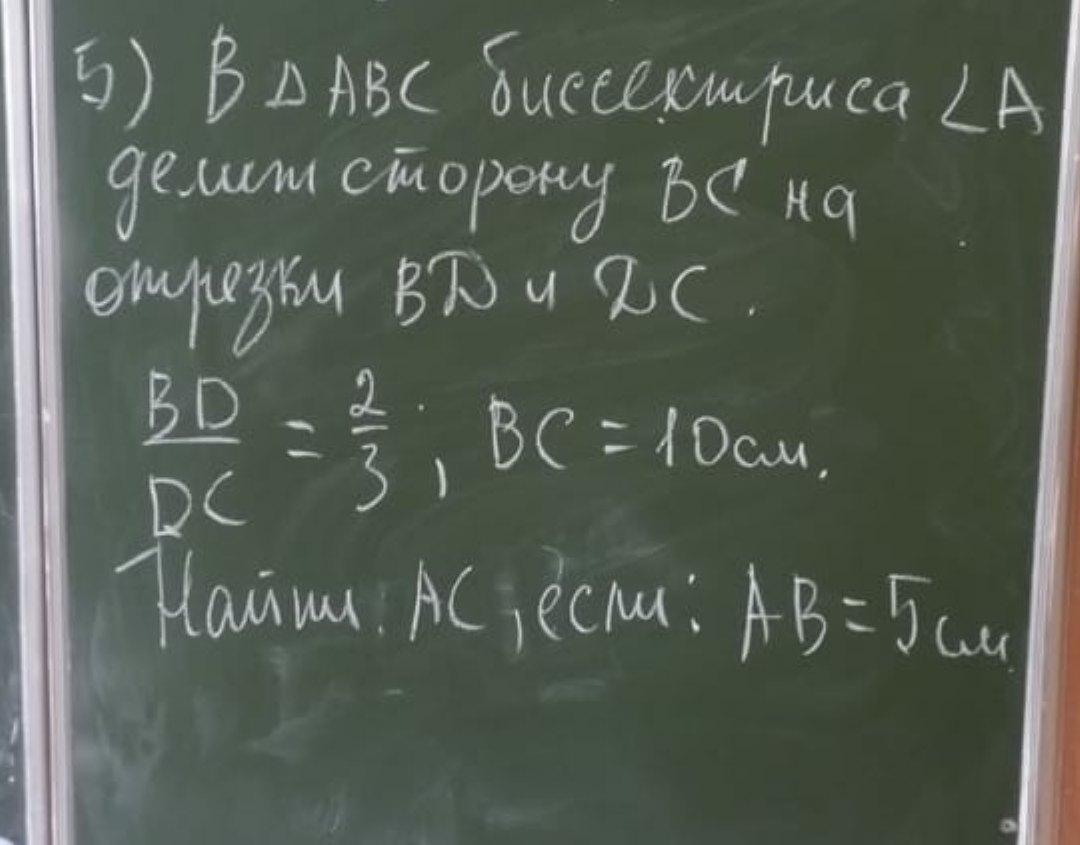 5) В △ ABC биссектриса ∠A
делит сторону BC на
отрезки BD и DC.
BD/DC = 2/3; BC = 10см.
Найти AC, если: AB = 5см